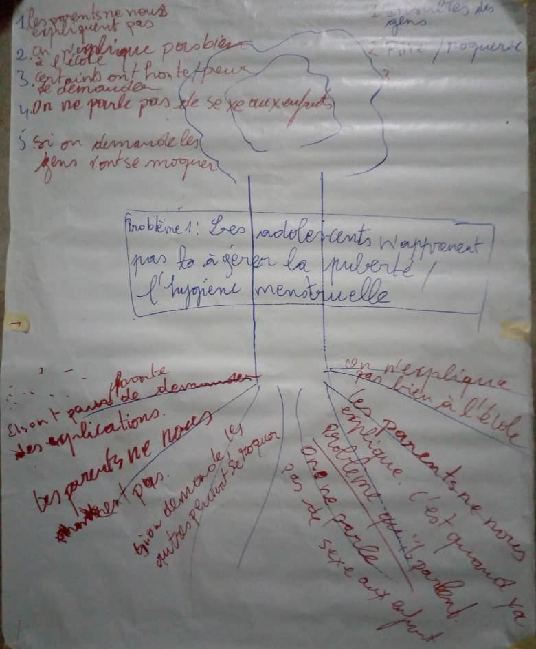 1. les parents ne nous
expliquent pas
2. on n'explique pas bien
à l'école
3. certains ont honte/peur
de demander
4. On ne parle pas de sexe aux enfants
5 si on demande les
gens vont se moquer
des
gens
moquerie
Problème 1: Les adolescents n'apprenent
pas à gérer la puberté /
l'hygiène menstruelle
honte
Ils ont peur de demander
des explications.
les parents ne nous
pas.
si on demande les
autres peuvent se moquer
on n'explique
pas bien à l'école
les parents ne nous
explique. C'est quand ya
problème qu'ils parlent.
on ne parle
pas de sexe aux enfant